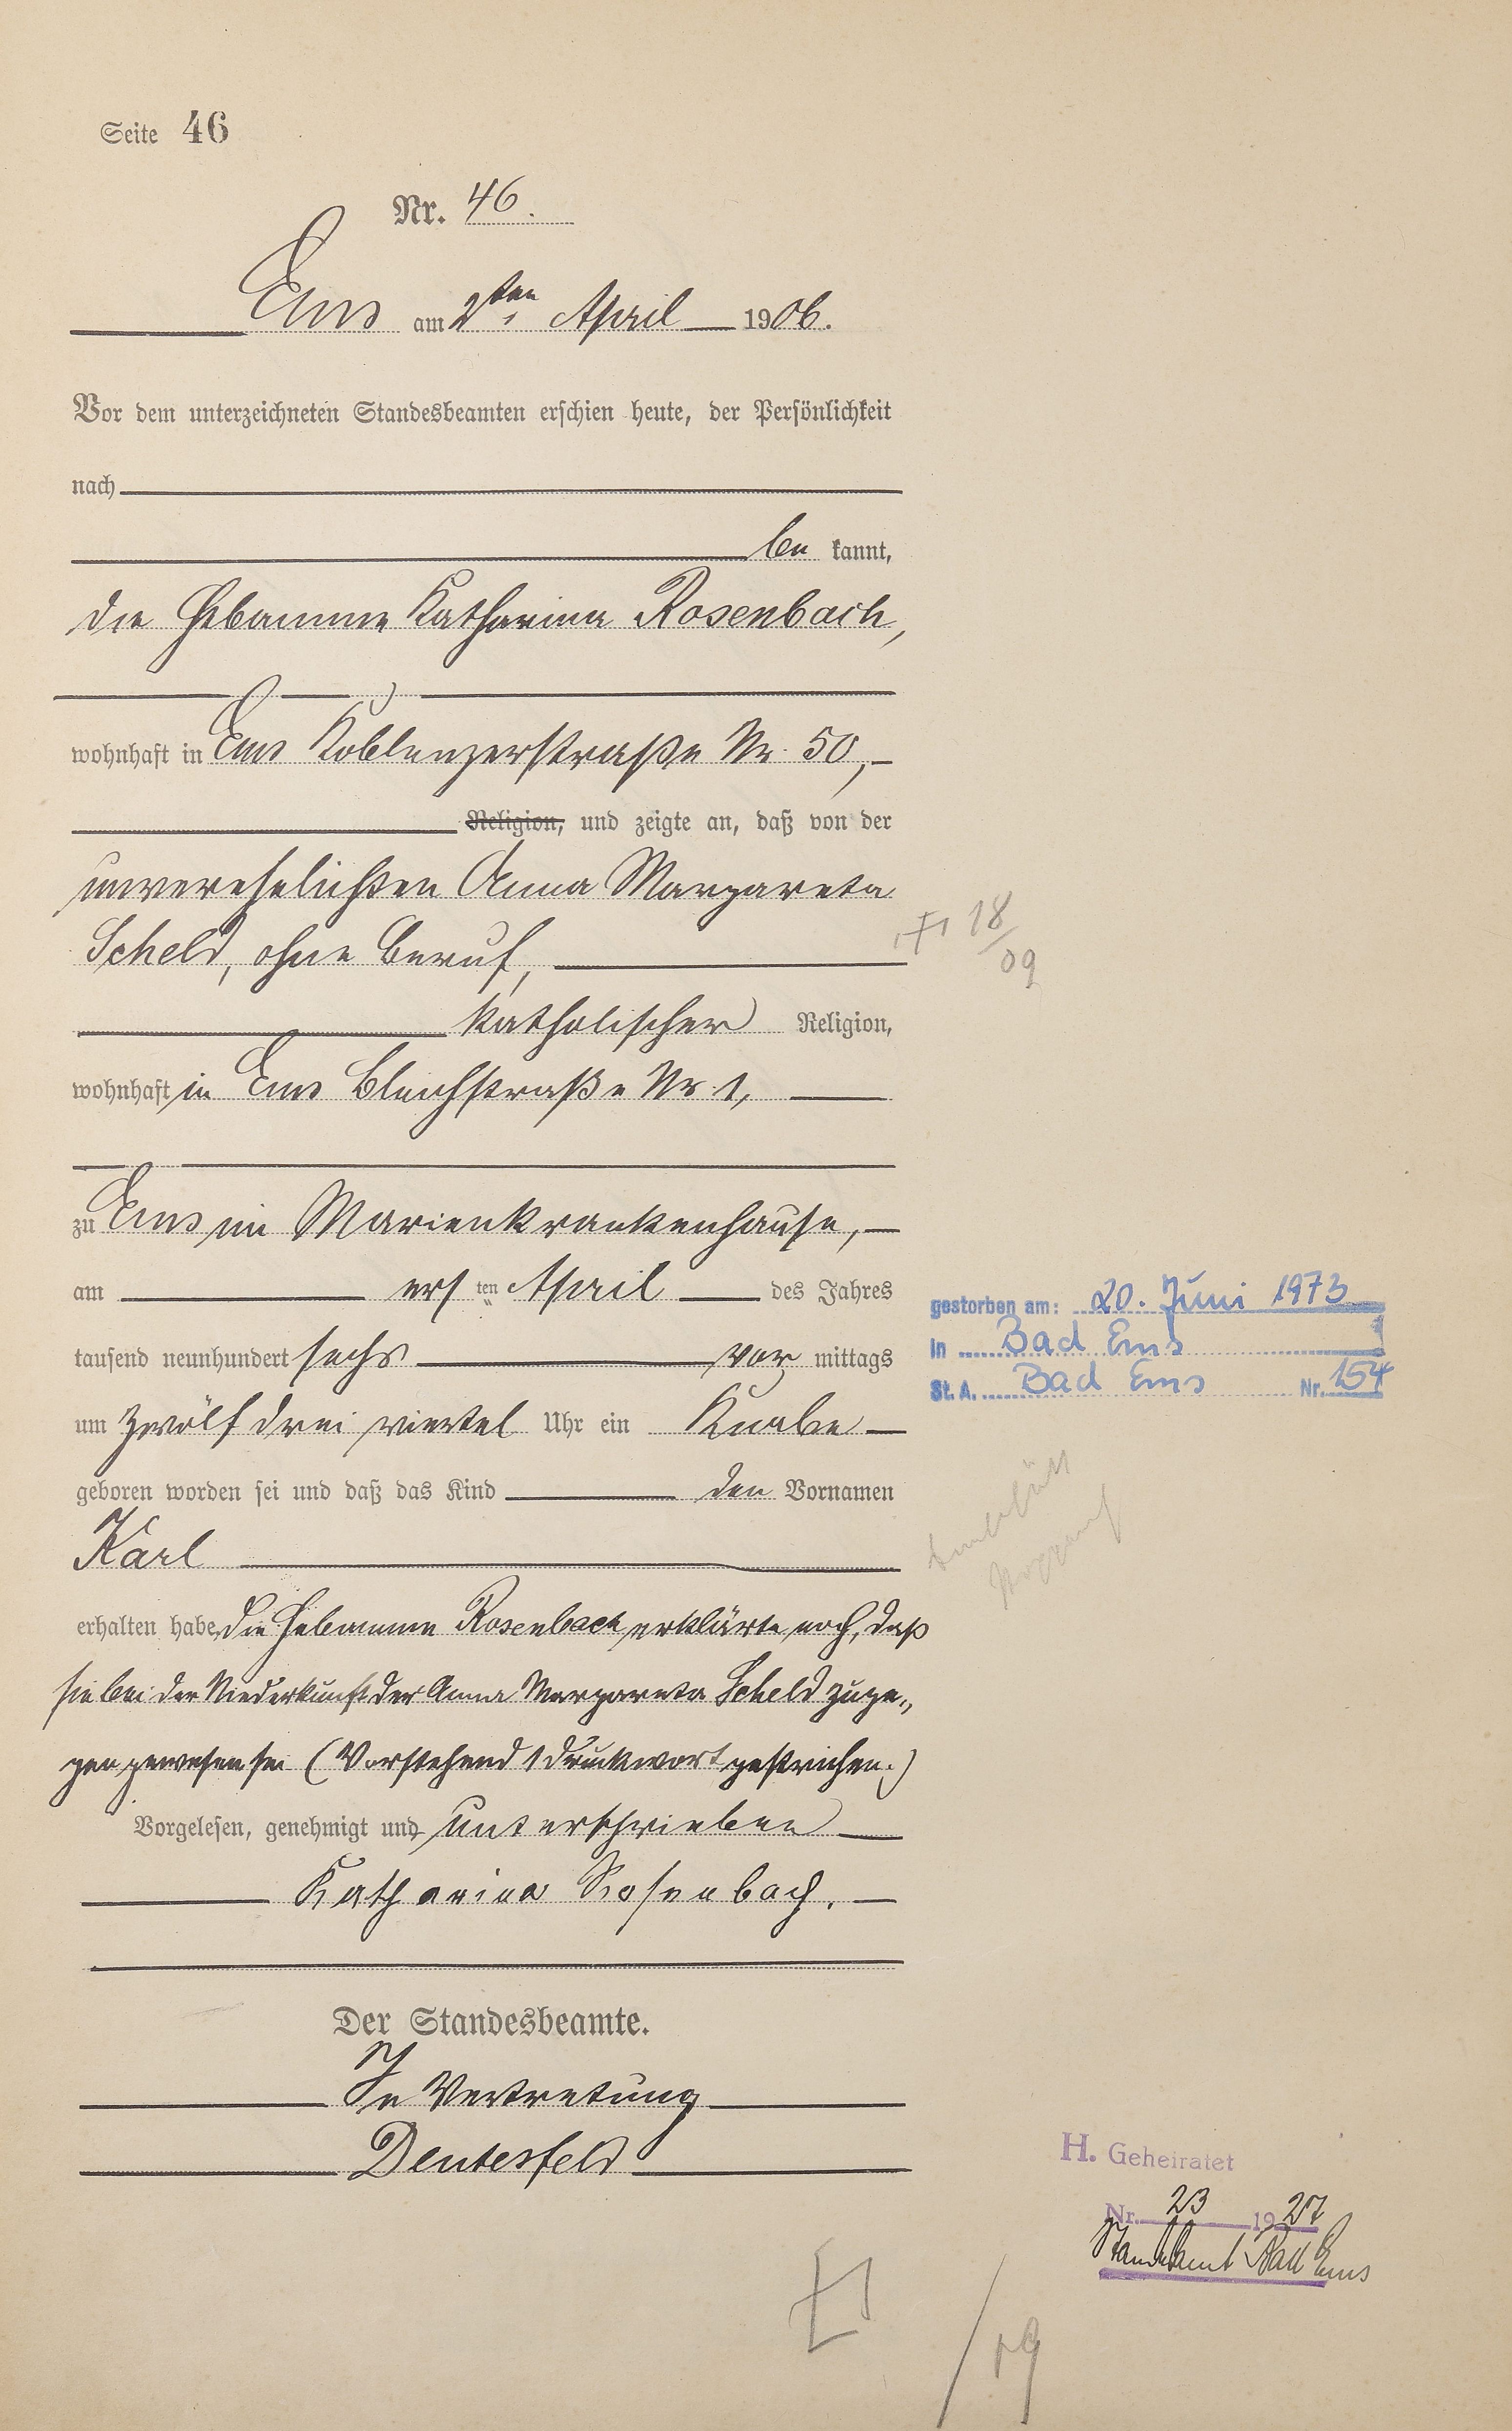 Seite 46
Nr. 46.
Ems am 2ten April 1906.
Vor dem unterzeichneten Standesbeamten erschien heute, der Persönlichkeit
nach
be kannt,
die Hebamme Katharina Rosenbach,
wohnhaft in Ems Koblenzerstraße Nr. 50,
Religion, und zeigte an, daß von der
unverehelichten Anna Margareta
Scheld, ohne Beruf,
† 18/09
katholischer Religion,
wohnhaft in Ems Bleichstraße Nr. 1,
zu Ems im Marienkrankenhause,
am ers ten April des Jahres
tausend neunhundert sechs vor mittags
um zwölf drei viertel Uhr ein Knabe
geboren worden sei und daß das Kind den Vornamen
Karl
erhalten habe. Die Hebamme Rosenbach erklärte noch, daß
sie bei der Niederkunft der Anna Margareta Scheld zuge„
gen gewesen sei (Vorstehend 1 Druckwort gestrichen.)
Vorgelesen, genehmigt und unterschrieben
Katharina Rosenbach.
Der Standesbeamte.
In Vertretung
Deutesfeld
gestorben am: 20. Juni 1973
in Bad Ems
St. A. Bad Ems Nr. 154
H. Geheiratet
Nr. 23 1927
Standesamt Bad Ems